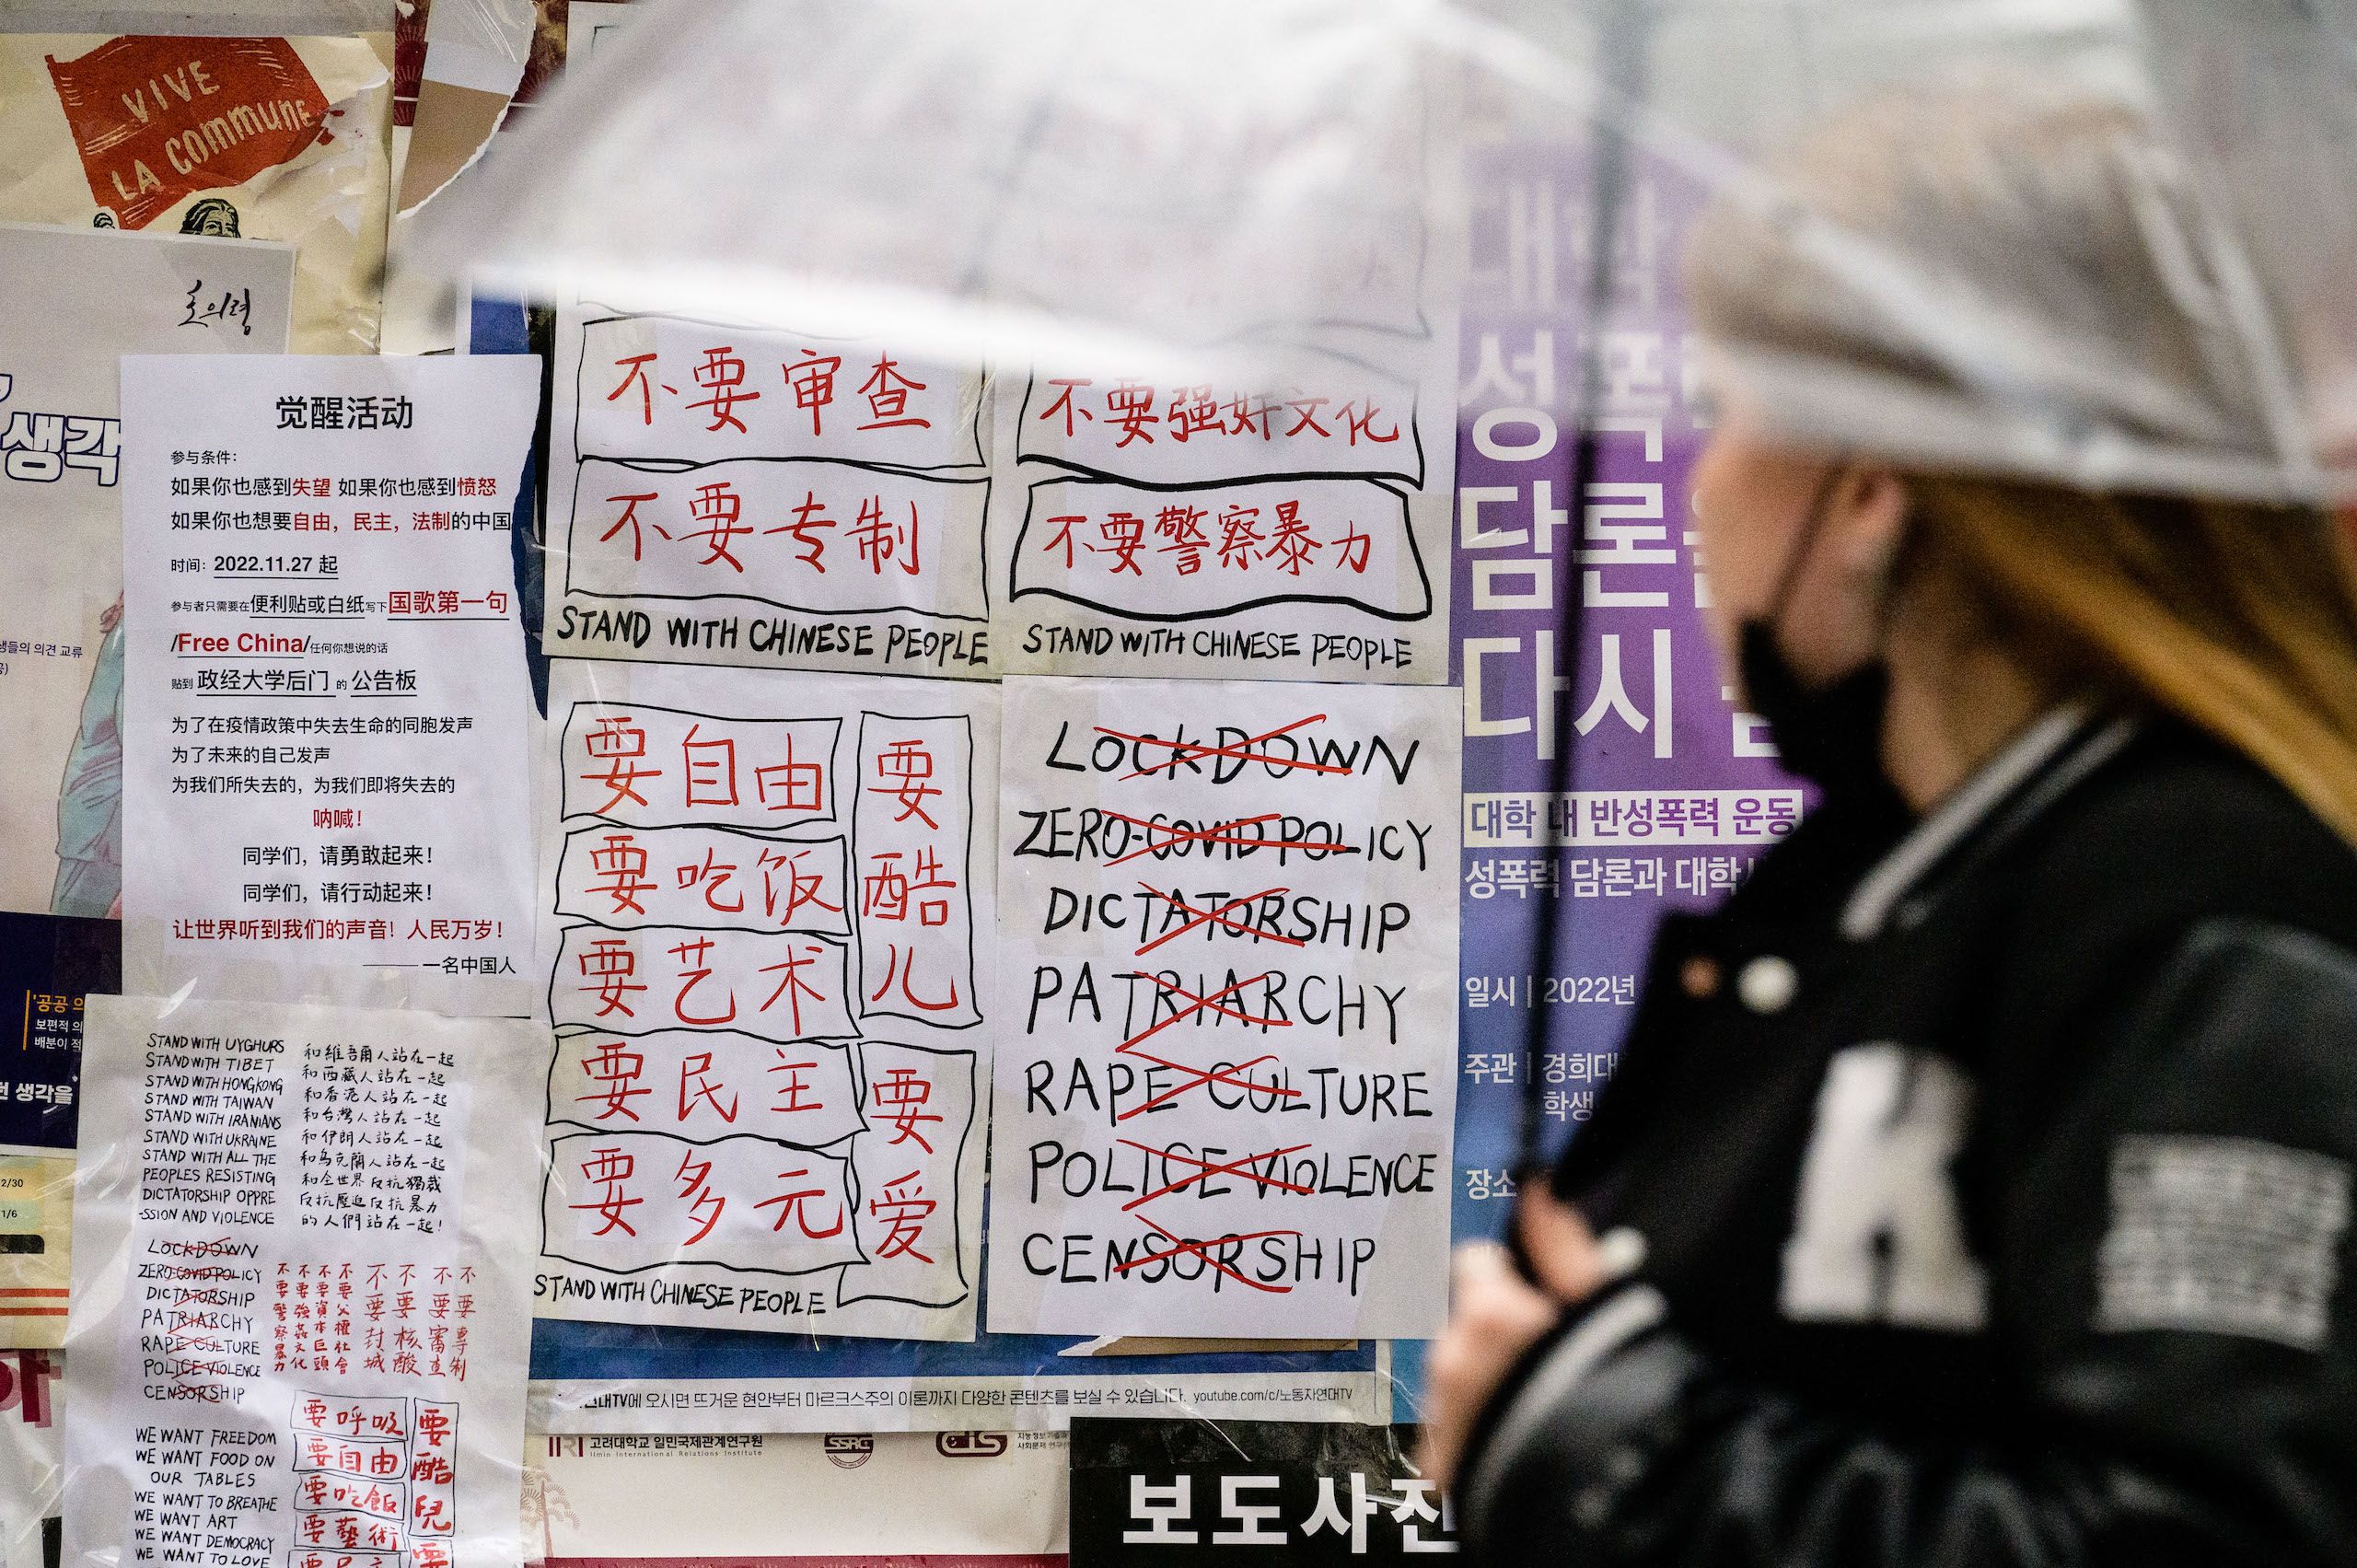 VIVE
LA COMMUNE
생각
觉醒活动
参与条件：
如果你也感到失望 如果你也感到愤怒
如果你也想要自由，民主，法制的中国
时间：2022.11.27 起
参与者只需要在便利贴或白纸写下国歌第一句
/Free China/任何你想说的话
贴到 政经大学后门 的 公告板
为了在疫情政策中失去生命的同胞发声
为了未来的自己发声
为我们所失去的，为我们即将失去的
呐喊！
同学们，请勇敢起来！
同学们，请行动起来！
让世界听到我们的声音！人民万岁！
——一名中国人
不要审查
不要专制
STAND WITH CHINESE PEOPLE
不要强奸文化
不要警察暴力
STAND WITH CHINESE PEOPLE
要自由
要吃饭
要艺术
要民主
要多元
要酷儿
要爱
STAND WITH CHINESE PEOPLE
LOCKDOWN
ZERO-COVID POLICY
DICTATORSHIP
PATRIARCHY
RAPE CULTURE
POLICE VIOLENCE
CENSORSHIP
STAND WITH UYGHURS
STAND WITH TIBET
STAND WITH HONGKONG
STAND WITH TAIWAN
STAND WITH IRANIANS
STAND WITH UKRAINE
STAND WITH ALL THE
PEOPLES RESISTING
DICTATORSHIP OPPRE
-SSION AND VIOLENCE
和維吾爾人站在一起
和西藏人站在一起
和香港人站在一起
和台灣人站在一起
和伊朗人站在一起
和烏克蘭人站在一起
和全世界反抗獨裁
反抗壓迫反抗暴力
的人們站在一起！
LOCKDOWN
ZERO-COVID POLICY
DICTATORSHIP
PATRIARCHY
RAPE CULTURE
POLICE VIOLENCE
CENSORSHIP
不要警察暴力
不要強姦文化
不要資本巨頭
不要父權社會
不要封城
不要核酸
不要審查
不要專制
WE WANT FREEDOM
WE WANT FOOD ON
OUR TABLES
WE WANT TO BREATHE
WE WANT ART
WE WANT DEMOCRACY
WE WANT TO LOVE
要呼吸
要自由
要吃飯
要藝術
要酷兒
대학
성폭
담론
다시
대학 내 반성폭력 운동
성폭력 담론과 대학
일시 | 2022년
주관 | 경희대
학생
장소
'공공 의
보편적 의
배분이 적
생각을
2/30
1/6
생들의 의견 교류
TV에 오시면 뜨거운 현안부터 마르크스주의 이론까지 다양한 콘텐츠를 보실 수 있습니다. youtube.com/c/노동자연대TV
IIRI 고려대학교 일민국제관계연구원
Ilmin International Relations Institute
SSRC
보도사진
K